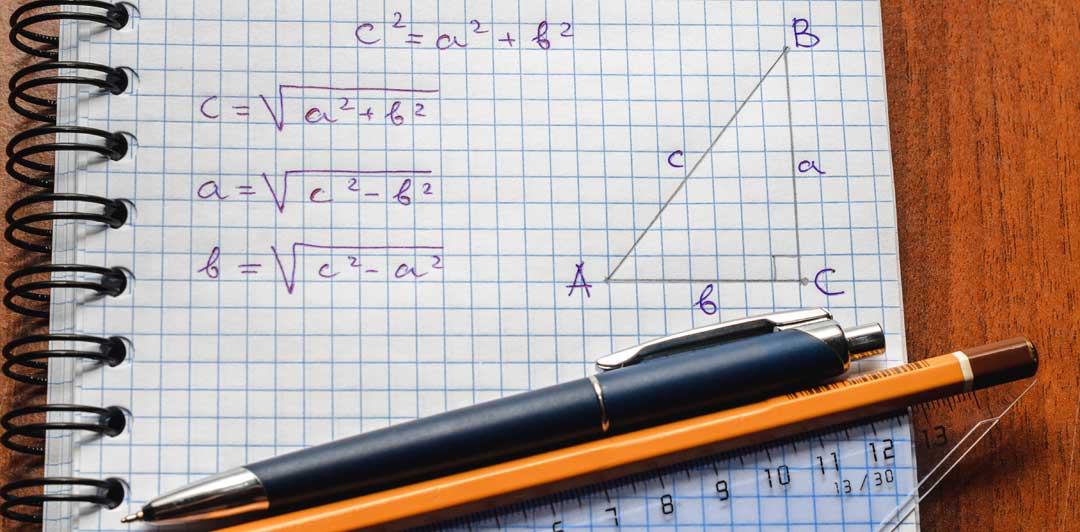 c² = a² + b²
c = √(a² + b²)
a = √(c² - b²)
b = √(c² - a²)
B
c
a
A
b
C
7
8
9
10
11
12
13
13/30